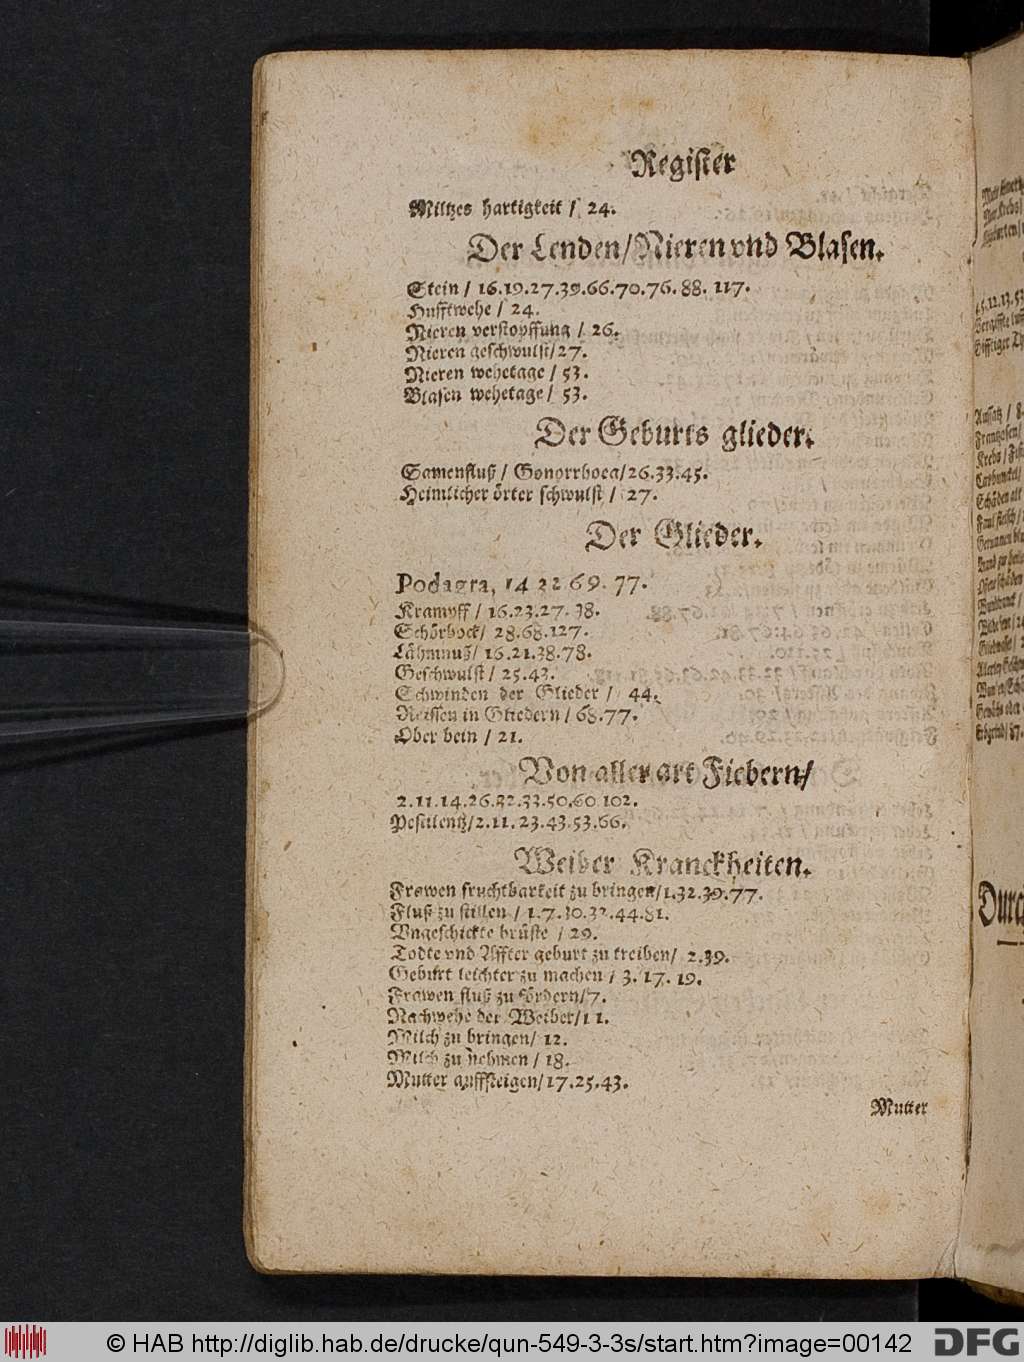 Register
Miltzes hartigkeit / 24.
Der Lenden/Nieren vnd Blasen.
Stein / 16.19.27.39.66.70.76.88. 117.
Hufftwehe / 24.
Nieren verstopffung / 26.
Nieren geschwulst/27.
Nieren wehetage / 53.
Blasen wehetage / 53.
Der Geburts glieder.
Samenfluß / Gonorrhoea/26.33.45.
Heimlicher örter schwulst / 27.
Der Glieder.
Podagra, 14 32 69. 77.
Krampff / 16.23.27.38.
Schörbock/ 28.68.127.
Lähmnuß/ 16.21.38.78.
Geschwulst / 25.43.
Schwinden der Glieder / 44.
Reissen in Gliedern / 68.77.
Ober bein / 21.
Von aller art Fiebern/
2.11.14.26.32.33.50.60 102.
Pestilentz/2.11.23.43.53.66.
Weiber Kranckheiten.
Frawen fruchtbarkeit zu bringen/1.32.39.77.
Fluß zu stillen / 1.7.30.32.44.81.
Vngeschickte brüste / 29.
Todte vnd Affter geburt zu treiben/ 2.39.
Geburt leichter zu machen / 3. 17. 19.
Frawen fluß zu fördern/7.
Nachwehe der Weiber/11.
Milch zu bringen/ 12.
Milch zu nehmen / 18.
Mutter auffsteigen/17.25.43.
Mutter
Aussatz / 8
Frantzosen/
Krebs / Fist
Carbunckel/
Schäden alt
Faul fleisch /
Durch
© HAB http://diglib.hab.de/drucke/qun-549-3-3s/start.htm?image=00142
DFG